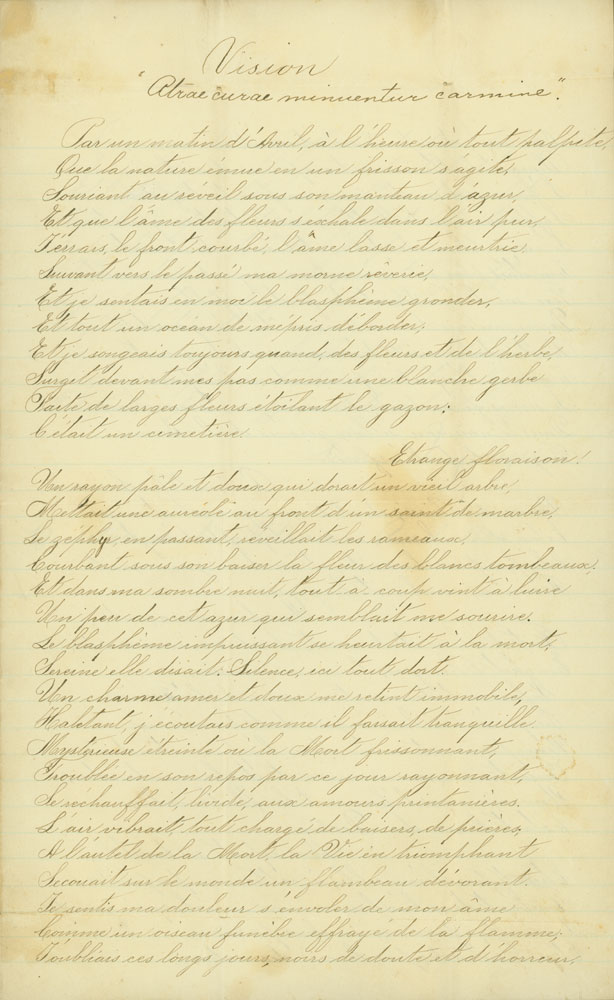 Vision
"Atrae curae minuentur carmine".
Par un matin d'Avril, à l'heure où tout palpite,
Que la nature émue en un frisson s'agite,
Souriant au réveil sous son manteau d'azur,
Et que l'âme des fleurs s'exhale dans l'air pur,
J'errais, le front courbé, l'âme lasse et meurtrie
Suivant vers le passé ma morne rêverie,
Et je sentais en moi le blasphème gronder,
Et tout un océan de mépris déborder;
Et je songeais toujours quand, des fleurs et de l'herbe,
Surgit devant mes pas comme une blanche gerbe
Faite de larges fleurs étoilant le gazon:
C'était un cimetière.
Etrange floraison!
Un rayon pâle et doux qui dorait un vieil arbre,
Mettait une auréole au front d'un saint de marbre,
Le zéphyr, en passant, réveillait les rameaux,
Courbant sous son baiser la fleur des blancs tombeaux,
Et dans ma sombre nuit, tout à coup vint à luire
Un peu de cet azur qui semblait me sourire.
Le blasphème impuissant se heurtait à la mort,
Sereine elle disait: Silence, ici tout dort.
Un charme amer et doux me retint immobile,
Haletant, j'écoutais comme il faisait tranquille
Mystérieuse étreinte où la Mort frissonnant,
Troublée en son repos par ce jour rayonnant,
Se réchauffait, livide, aux amours printanières.
L'air vibrait, tout chargé de baisers, de prières,
A l'autel de la Mort, la Vie en triomphant
Secouait sur le monde un flambeau dévorant.
Je sentis ma douleur s'envoler de mon âme
Comme un oiseau funèbre effrayé de la flamme;
J'oubliais ces longs jours, noirs de doute et d'horreur,